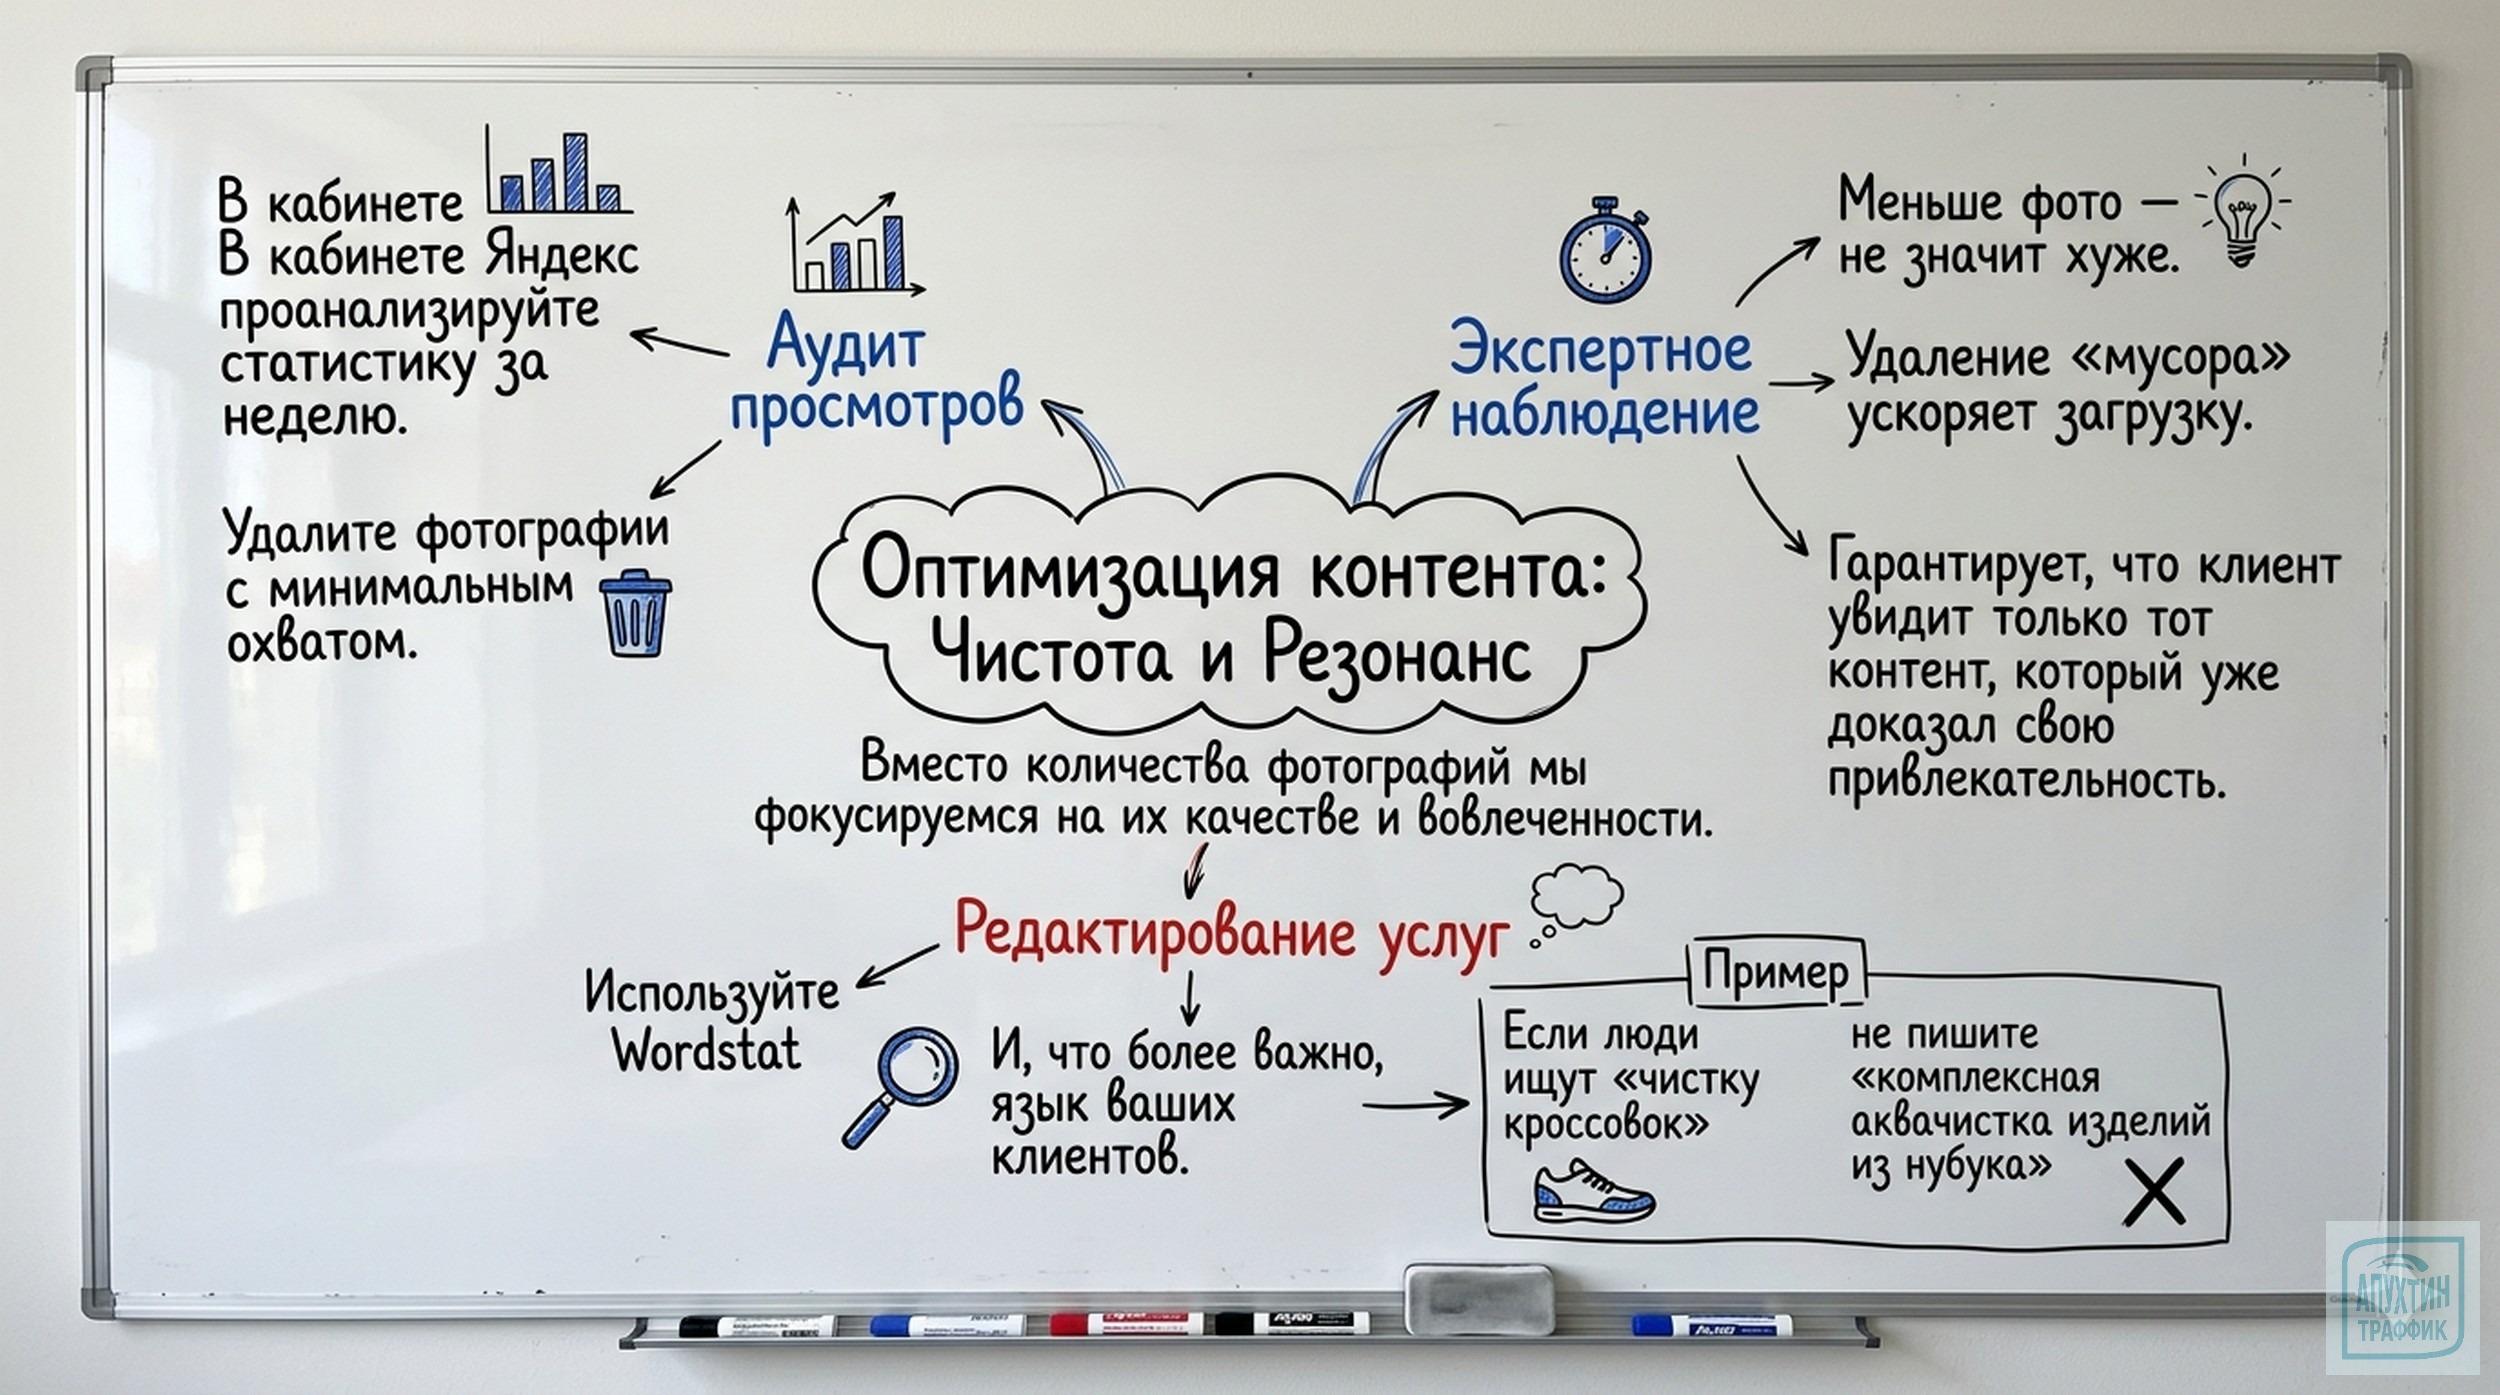 В кабинете
В кабинете Яндекс
проанализируйте
статистику за
неделю.
Аудит
просмотров
Удалите фотографии
с минимальным
охватом.
Экспертное
наблюдение
Меньше фото —
не значит хуже.
Удаление «мусора»
ускоряет загрузку.
Гарантирует, что клиент
увидит только тот
контент, который уже
доказал свою
привлекательность.
Оптимизация контента:
Чистота и Резонанс
Вместо количества фотографий мы
фокусируемся на их качестве и вовлеченности.
Редактирование услуг
Используйте
Wordstat
И, что более важно,
язык ваших
клиентов.
Пример
Если люди
ищут «чистку
кроссовок»
не пишите
«комплексная
аквачистка изделий
из нубука»
АПУХТИН
ТРАФФИК